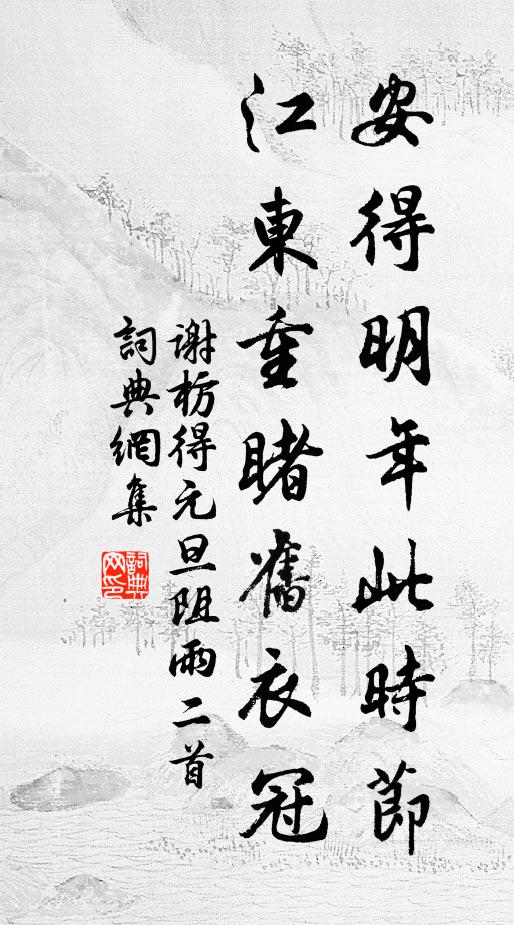 安得明年此時節
江東重睹舊衣冠
謝枋得元旦阻雨二首
詞典網集
詞典網印